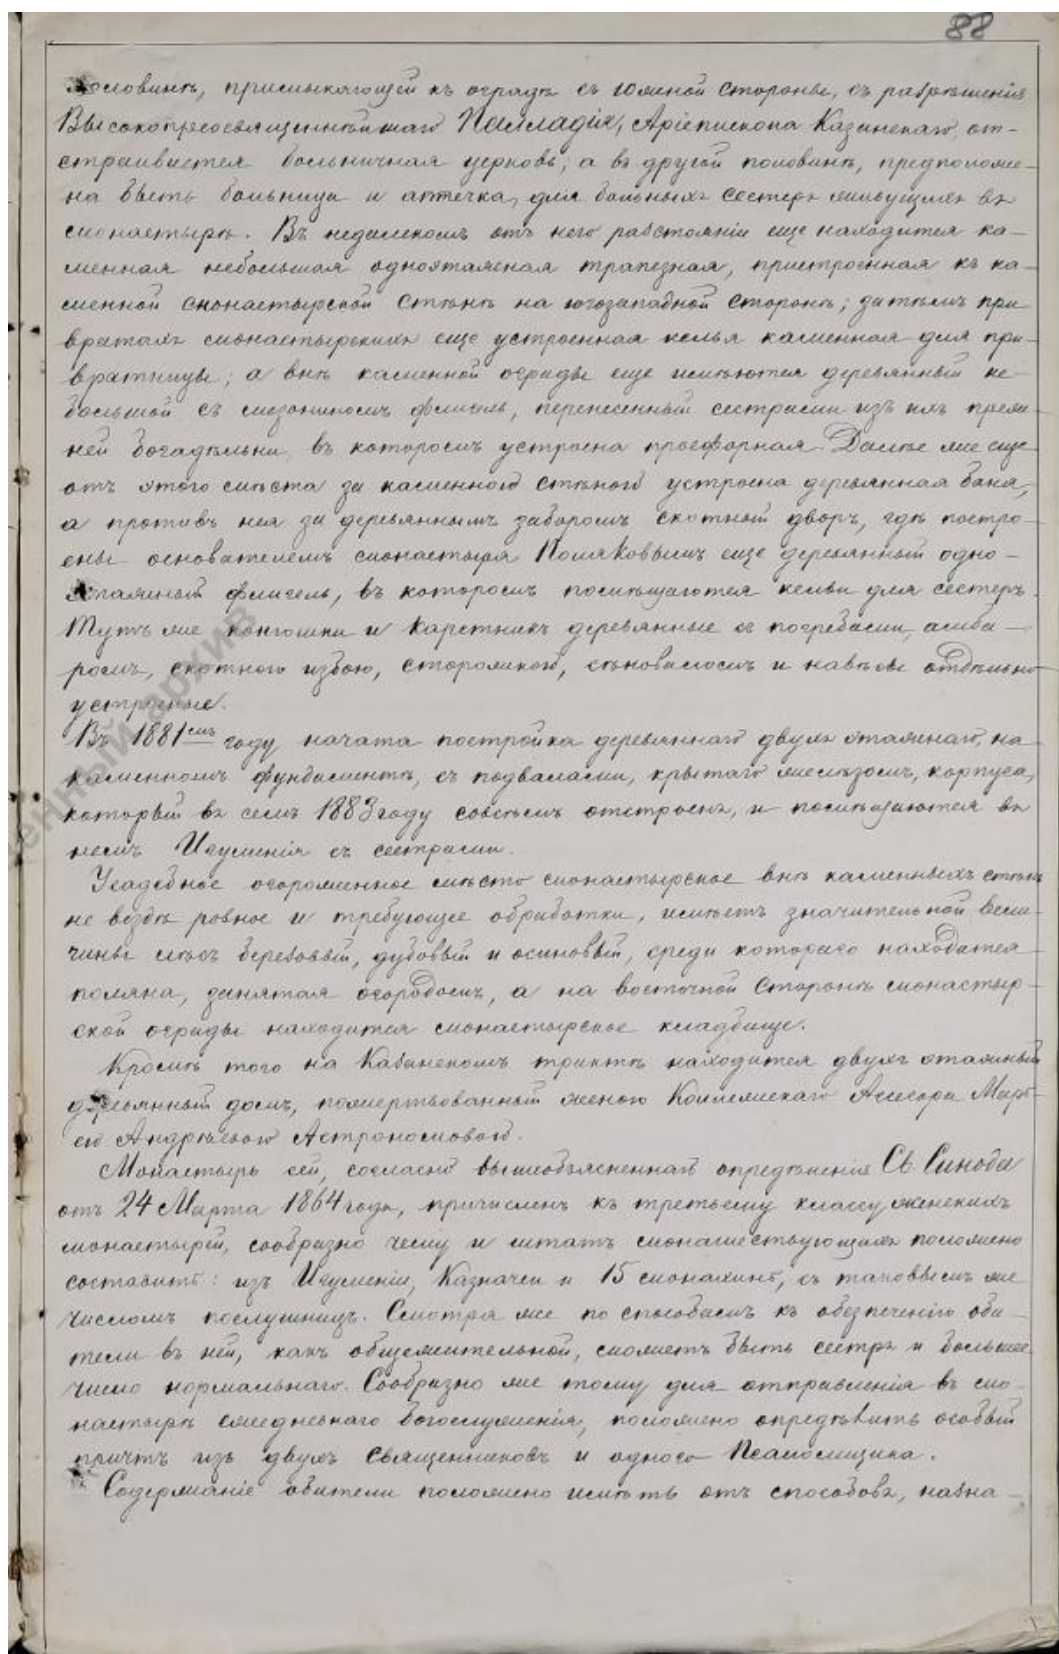 88
половинѣ, примыкающей къ оградѣ съ южной стороны, съ разрѣшенія
Высокопреосвященнѣйшаго Палладія, Архіепископа Казанскаго, от-
страивается больничная церковь; а въ другой половинѣ, предположе-
на быть больница и аптечка, для больныхъ сестеръ живущихъ въ
монастырѣ. Въ недалекомъ отъ него разстояніи еще находится ка-
менная небольшая одноэтажная трапезная, пристроенная къ ка-
менной монастырской стѣнѣ на югозападной сторонѣ; затѣмъ при
вратахъ монастырскихъ еще устроенная келья каменная для при-
вратницы; а внѣ каменной ограды еще имѣются деревянный не-
большой съ мезониномъ флигель, перенесенный сестрами изъ ихъ преж-
ней богадѣльни, въ которомъ устроена просфорная. Далѣе же еще
отъ этого мѣста за каменною стѣною устроена деревянная баня,
а противъ нея за деревяннымъ заборомъ скотный дворъ, гдѣ постро-
ены основателемъ монастыря Поляковымъ еще деревянный одно-
этажный флигель, въ которомъ помѣщаются кельи для сестеръ.
Тутъ же конюшни и каретникъ деревянные съ погребами, амба-
ромъ, скотною избою, сторожкою, сѣноваломъ и навѣсы отдѣльно
устроеные.
Въ 1881емъ году начата постройка деревяннаго двухъ этажнаго, на
каменномъ фундаментѣ, съ подвалами, крытаго желѣзомъ, корпуса,
который въ семъ 1883 году совсѣмъ отстроенъ, и помѣщаются въ
немъ Игуменія съ сестрами.
Усадебное огороженное мѣсто монастырское внѣ каменныхъ стѣнъ
не вездѣ ровное и требующее обработки, имѣетъ значительной вели-
чины лѣсъ березовый, дубовый и осиновый, среди котораго находится
поляна, занятая огородомъ, а на восточной сторонѣ монастыр-
ской ограды находится монастырское кладбище.
Кромѣ того на Казанскомъ трактѣ находится двухъ этажный
деревянный домъ, пожертвованный женою Коллежскаго Асесора Марь-
ею Андрѣевою Астрономовою.
Монастырь сей, согласно вышеобъясненнаго опредѣленія Св. Синода
отъ 24 Марта 1864 года, причисленъ къ третьему классу женскихъ
монастырей, сообразно чему и штатъ монашествующихъ положено
составить: изъ Игуменіи, Казначеи и 15 монахинь, съ таковымъ же
числомъ послушницъ. Смотря же по способамъ къ обезпеченію оби-
тели въ ней, какъ общежительной, можетъ быть сестръ и большее
число нормальнаго. Сообразно же тому для отправленія въ мо-
настырѣ ежедневнаго богослуженія, положено опредѣлить особый
причтъ изъ двухъ священниковъ и одного Псаломщика.
Содержаніе обители положено имѣть отъ способовъ, назна-